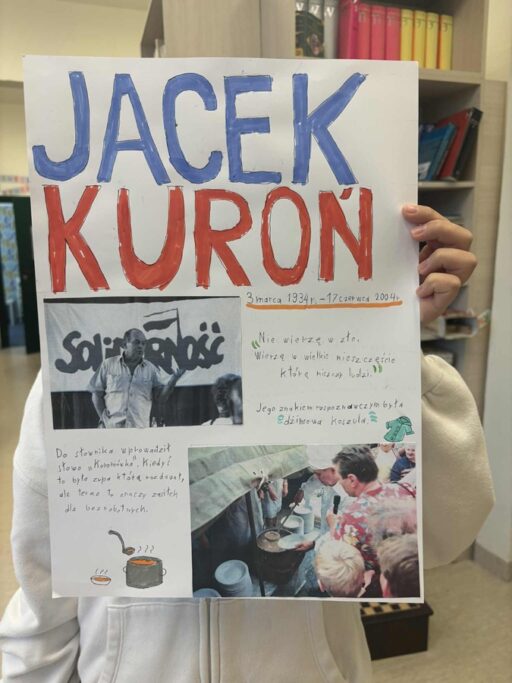 JACEK
KUROŃ
3 marca 1934r. – 17 czerwca 2004r.
SOLIDARNOŚĆ
„Nie wierzę w zło.
Wierzę w wielkie nieszczęście
które niszczy ludzi."
Jego znakiem rozpoznawczym była
"dżinsowa koszula."
Do słownika wprowadził
słowo „Kuroniówka". Kiedyś
to była zupa którą rozdawał,
ale teraz to znaczy zasiłek
dla bezrobotnych.